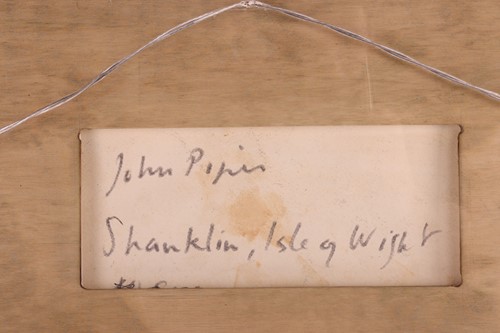 John Piper
Shanklin, Isle of Wight